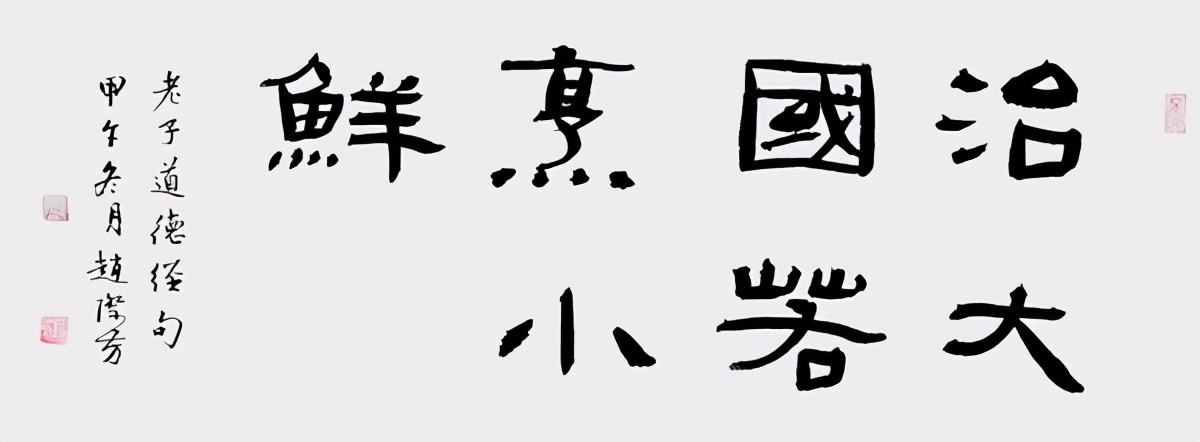 治大
國若
烹小
鮮
老子道德經句
甲午冬月趙